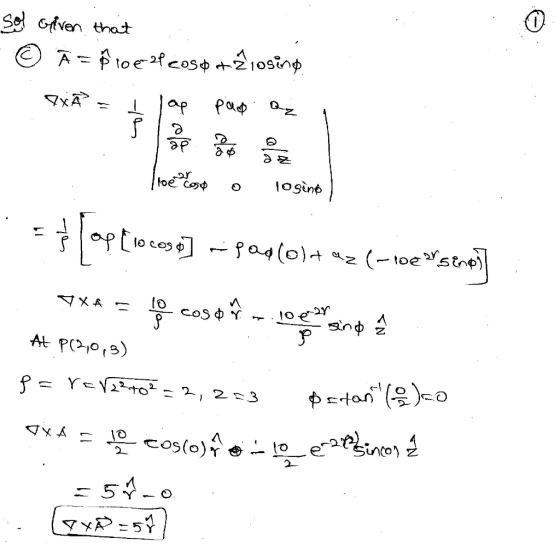 Sol Given that ①
Ⓒ Ā = ρ̂ 10e⁻²ᵖ cosφ + ẑ 10sinφ
∇×A⃗ = 1/ρ | aρ ρaφ az |
| ∂/∂ρ ∂/∂φ ∂/∂z |
| 10e⁻²ʳ cosφ 0 10 sinφ |
= 1/ρ [ aρ [10cosφ] - ρaφ(0) + az (-10e⁻²ʳ sinφ) ]
∇×A = 10/ρ cosφ r̂ - 10e⁻²ʳ/ρ sinφ ẑ
At P(2,0,3)
ρ = r = √2²+0² = 2, z=3 φ = tan⁻¹(0/2) = 0
∇×A = 10/2 cos(0) r̂ - 10/2 e⁻²⁽²⁾ sin(0) ẑ
= 5 r̂ - 0
∇×A⃗ = 5r̂